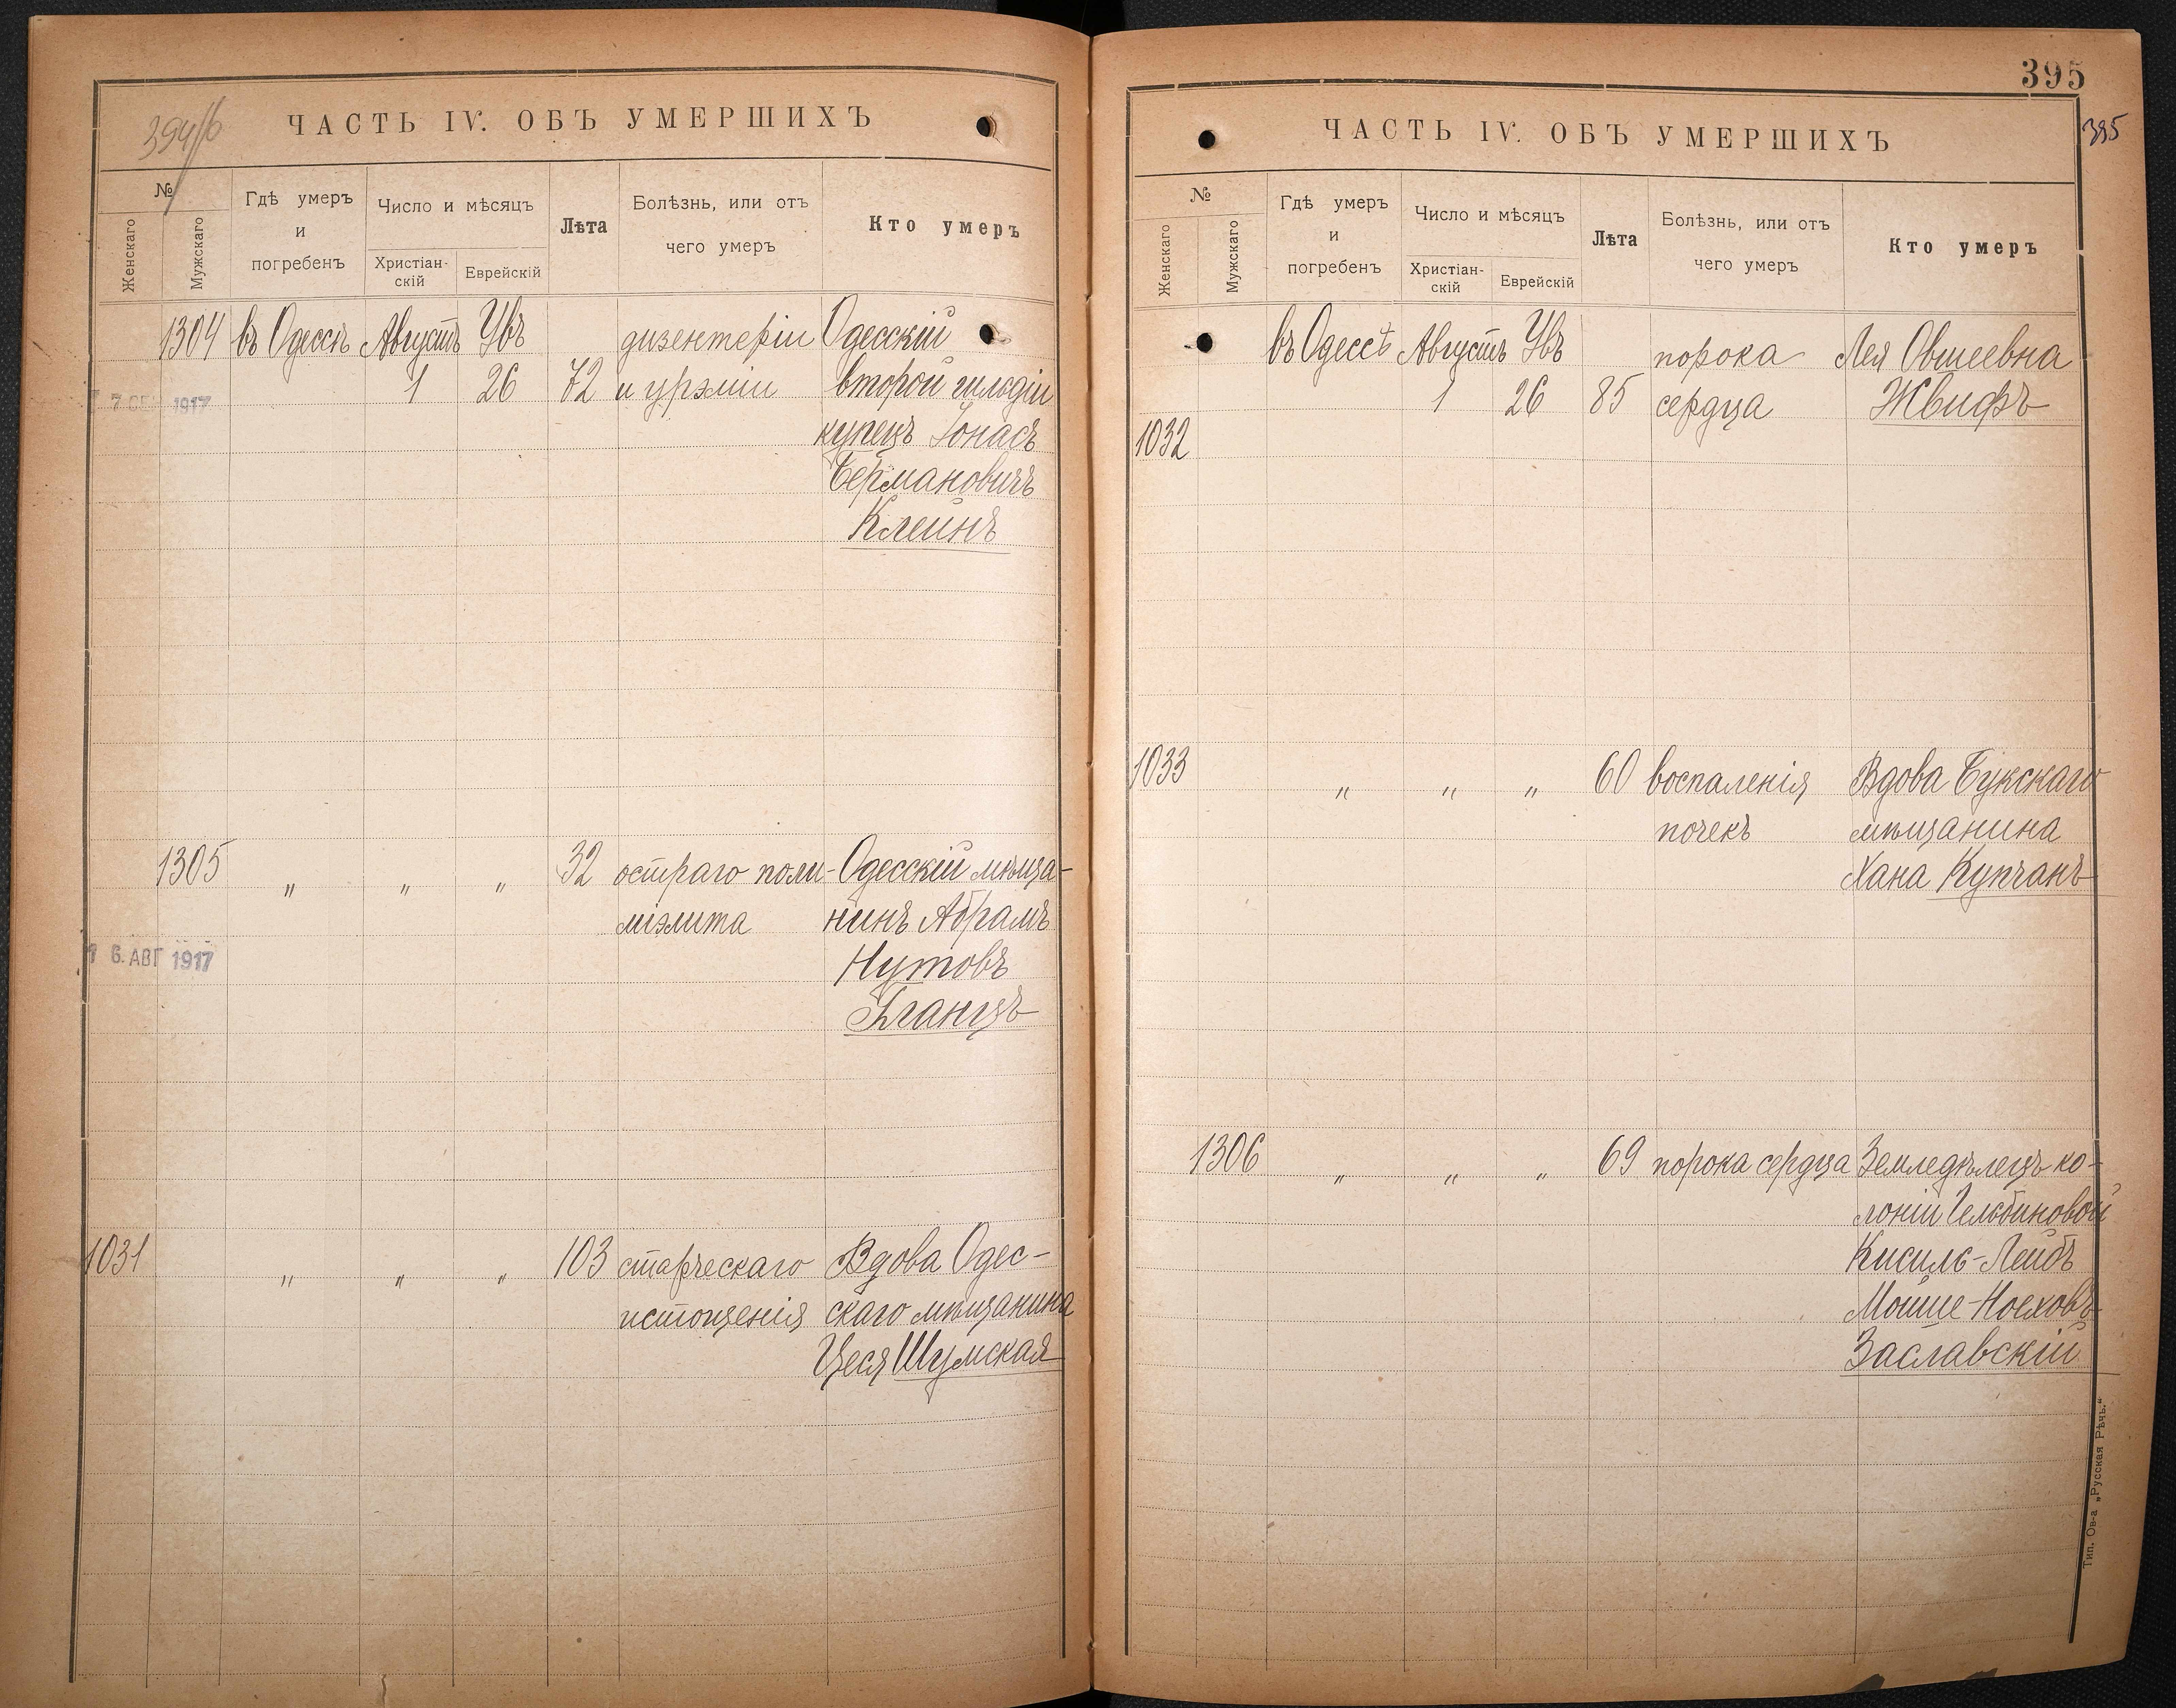 394/б
ЧАСТЬ IV. ОБЪ УМЕРШИХЪ
№
Женскаго
Мужскаго
Гдѣ умеръ
и
погребенъ
Число и мѣсяцъ
Христіан-
скій
Еврейскій
Лѣта
Болѣзнь, или отъ
чего умеръ
Кто умеръ
1304 въ Одессѣ Августъ Увъ дизентеріи Одесскій
1 26 72 и урэміи второй гильдіи
1917
купецъ Іонасъ
Бермановичъ
Клейнъ
1305 " " " 32 остраго поли- Одесскій мѣща-
міэлита нинъ Абрамъ
16. АВГ 1917
Нутовъ
Гланцъ
1031 " " " 103 старческаго Вдова Одес-
истощенія скаго мѣщанина
Цеся Шумская
395
395
ЧАСТЬ IV. ОБЪ УМЕРШИХЪ
№
Женскаго
Мужскаго
Гдѣ умеръ
и
погребенъ
Число и мѣсяцъ
Христіан-
скій
Еврейскій
Лѣта
Болѣзнь, или отъ
чего умеръ
Кто умеръ
въ Одессѣ Августъ Увъ порока Лея Овшеевна
1 26 85 сердца Жвифъ
1032
1033 " " " 60 воспаленія Вдова Букскаго
почекъ мѣщанина
Хана Купчанъ
1306 " " " 69 порока сердца Земледѣлецъ ко-
лоніи Гельбиновой
Кисиль-Лейбъ
Мойше-Ноеховъ
Заславскій
Тип. Ов-а „Русская Рѣчь."